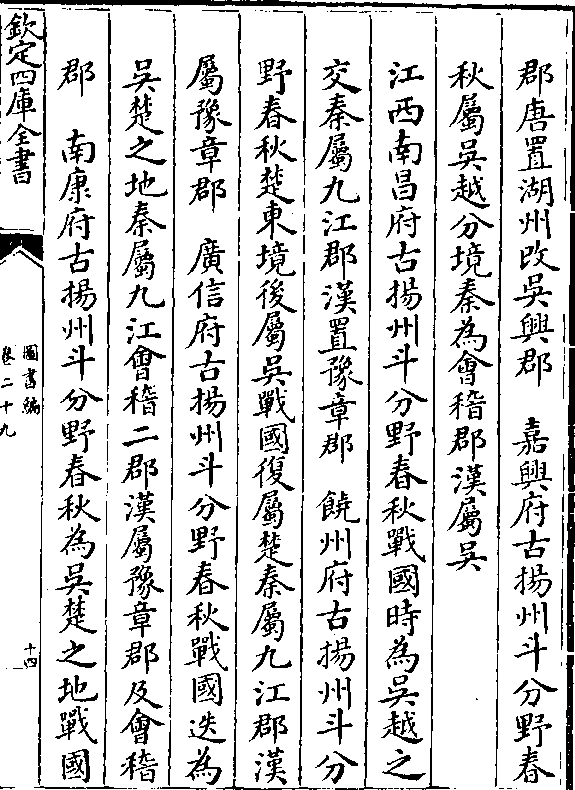 郡唐置湖州改吳興郡　嘉興府古揚州斗分野春
秋屬吳越分境秦為會稽郡漢屬吳
江西南昌府古揚州斗分野春秋戰國時為吳越之
交秦屬九江郡漢置豫章郡　饒州府古揚州斗分
野春秋楚東境後屬吳戰國復屬楚秦屬九江郡漢
屬豫章郡　廣信府古揚州斗分野春秋戰國迭為
吳楚之地秦屬九江會稽二郡漢屬豫章郡及會稽
郡　南康府古揚州斗分野春秋為吳楚之地戰國
欽定四庫全書
圖書編
卷二十九
十四